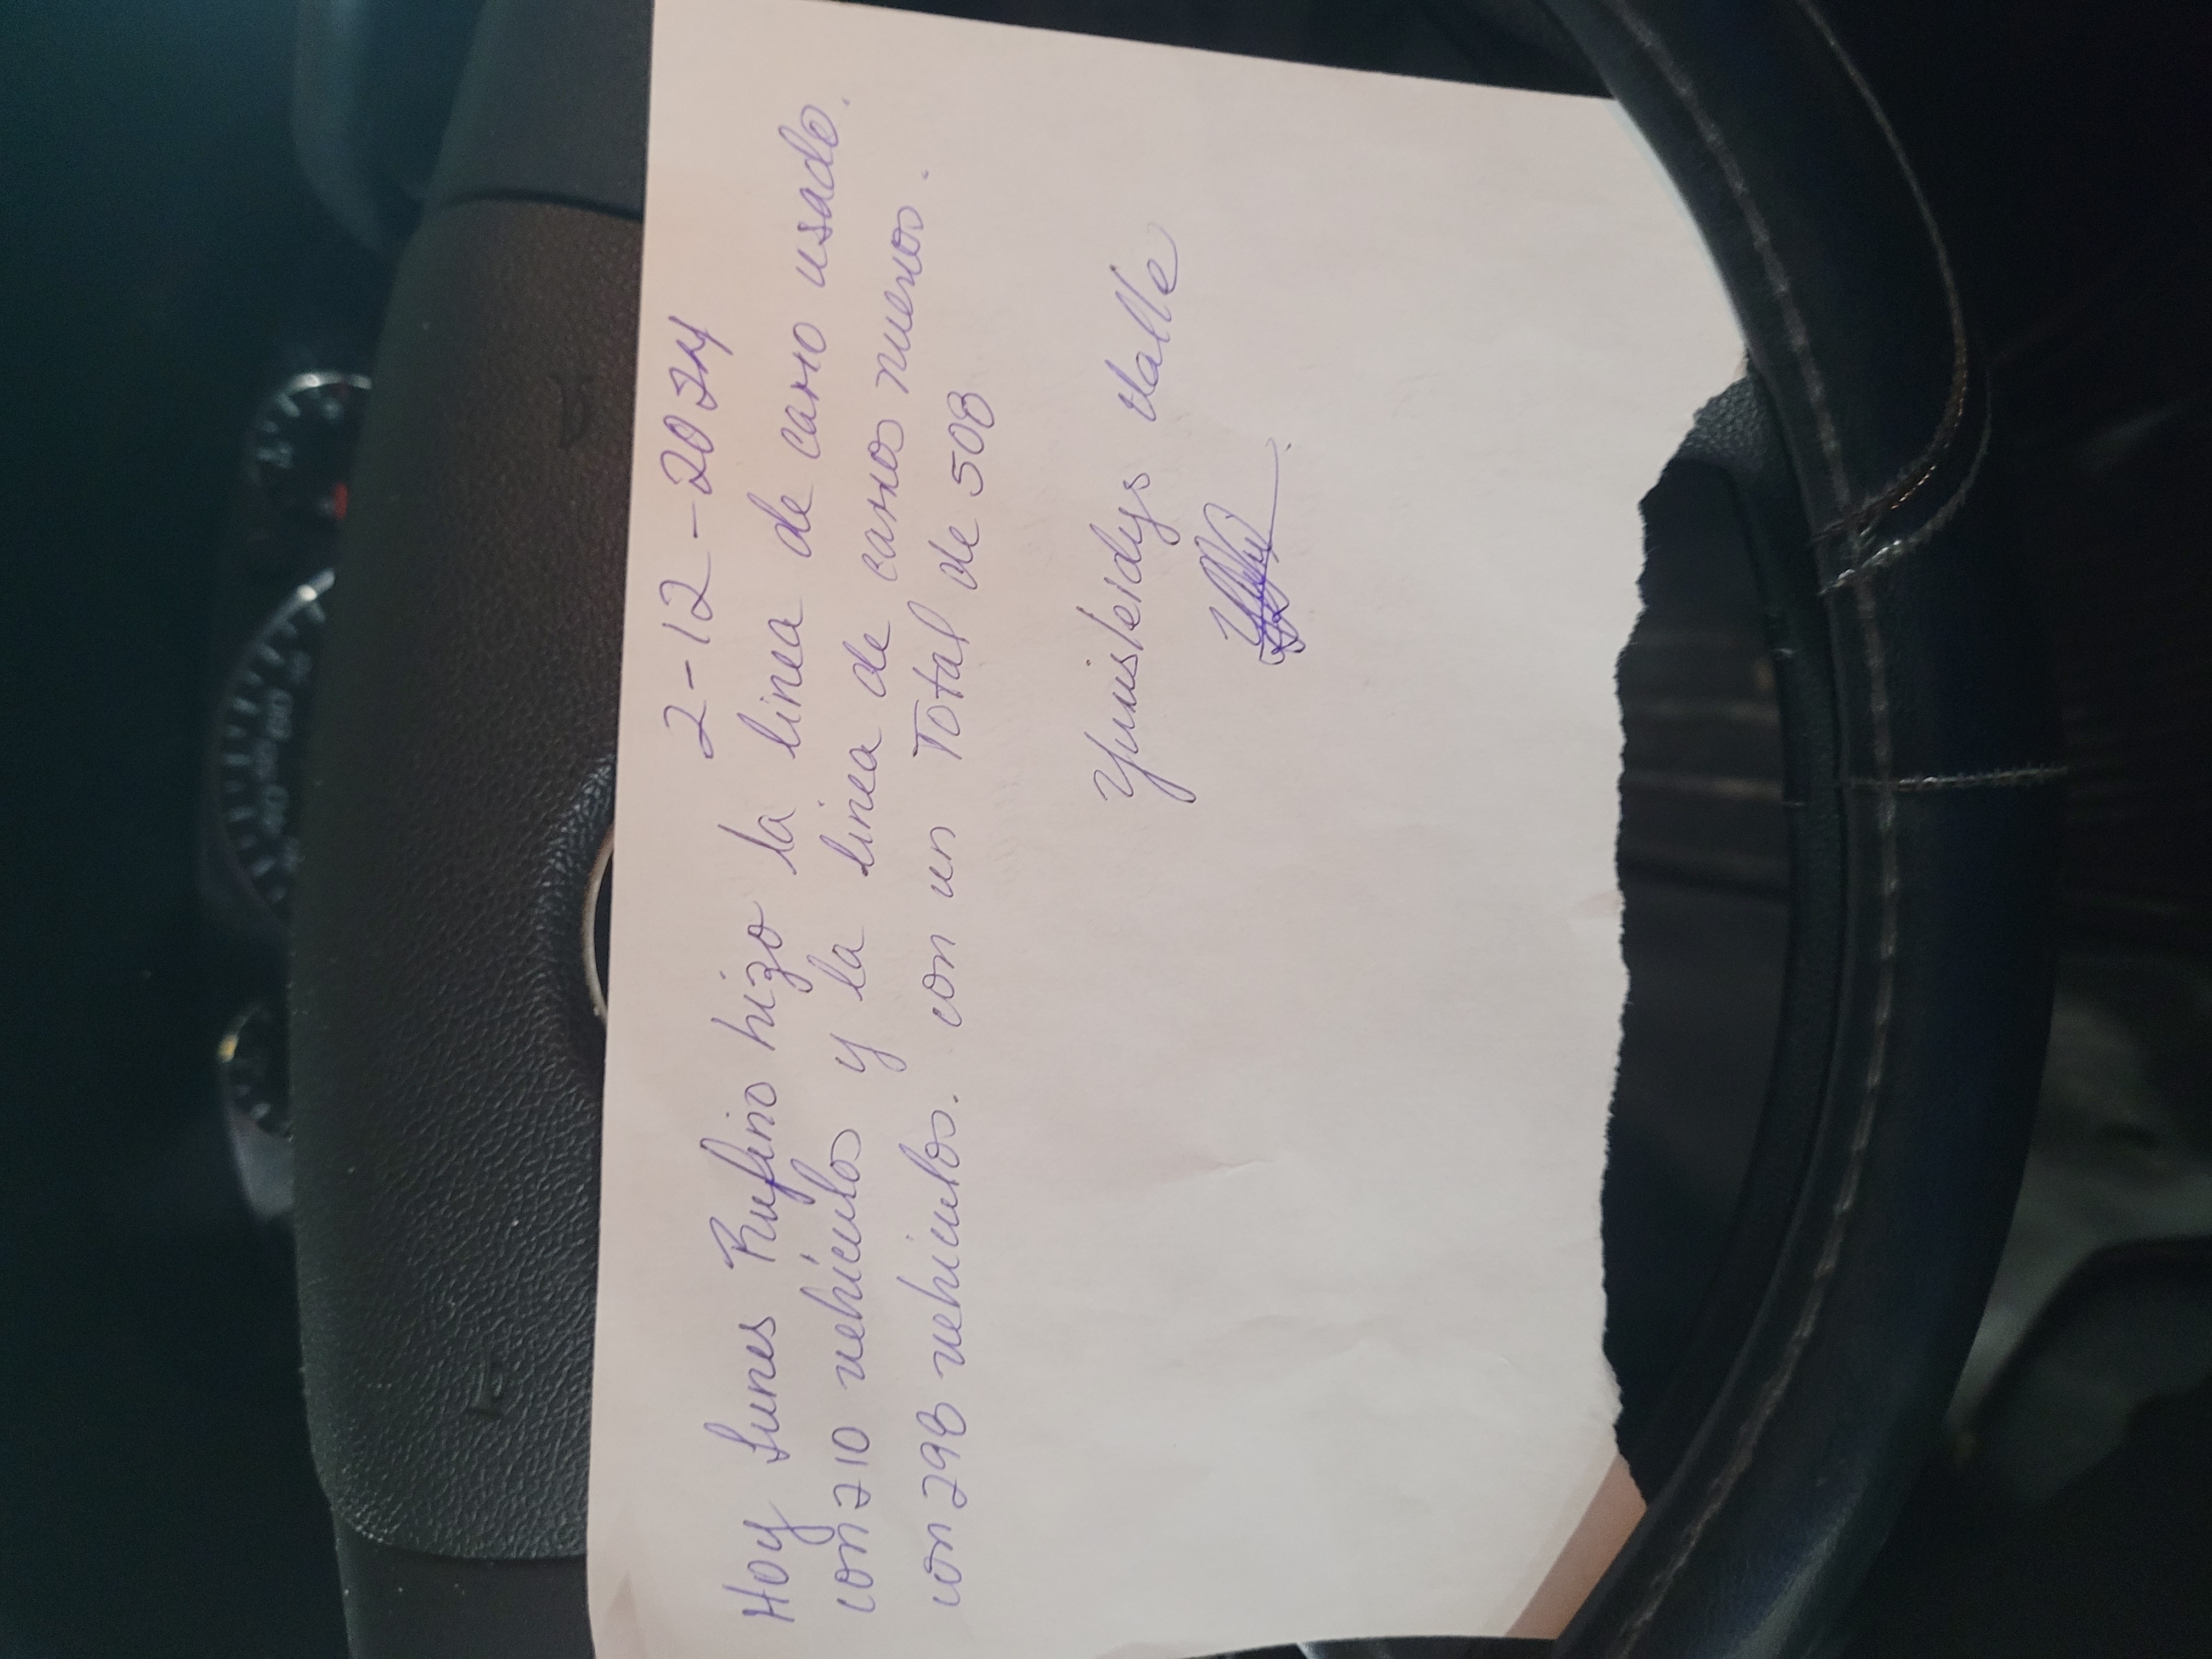 2-12-2024
Hoy lunes Rufino hizo la linea de carro usado.
con 210 vehículos y la linea de carros nuevos.
con 298 vehiculos. con un Total de 508
Yuisleidys Valle